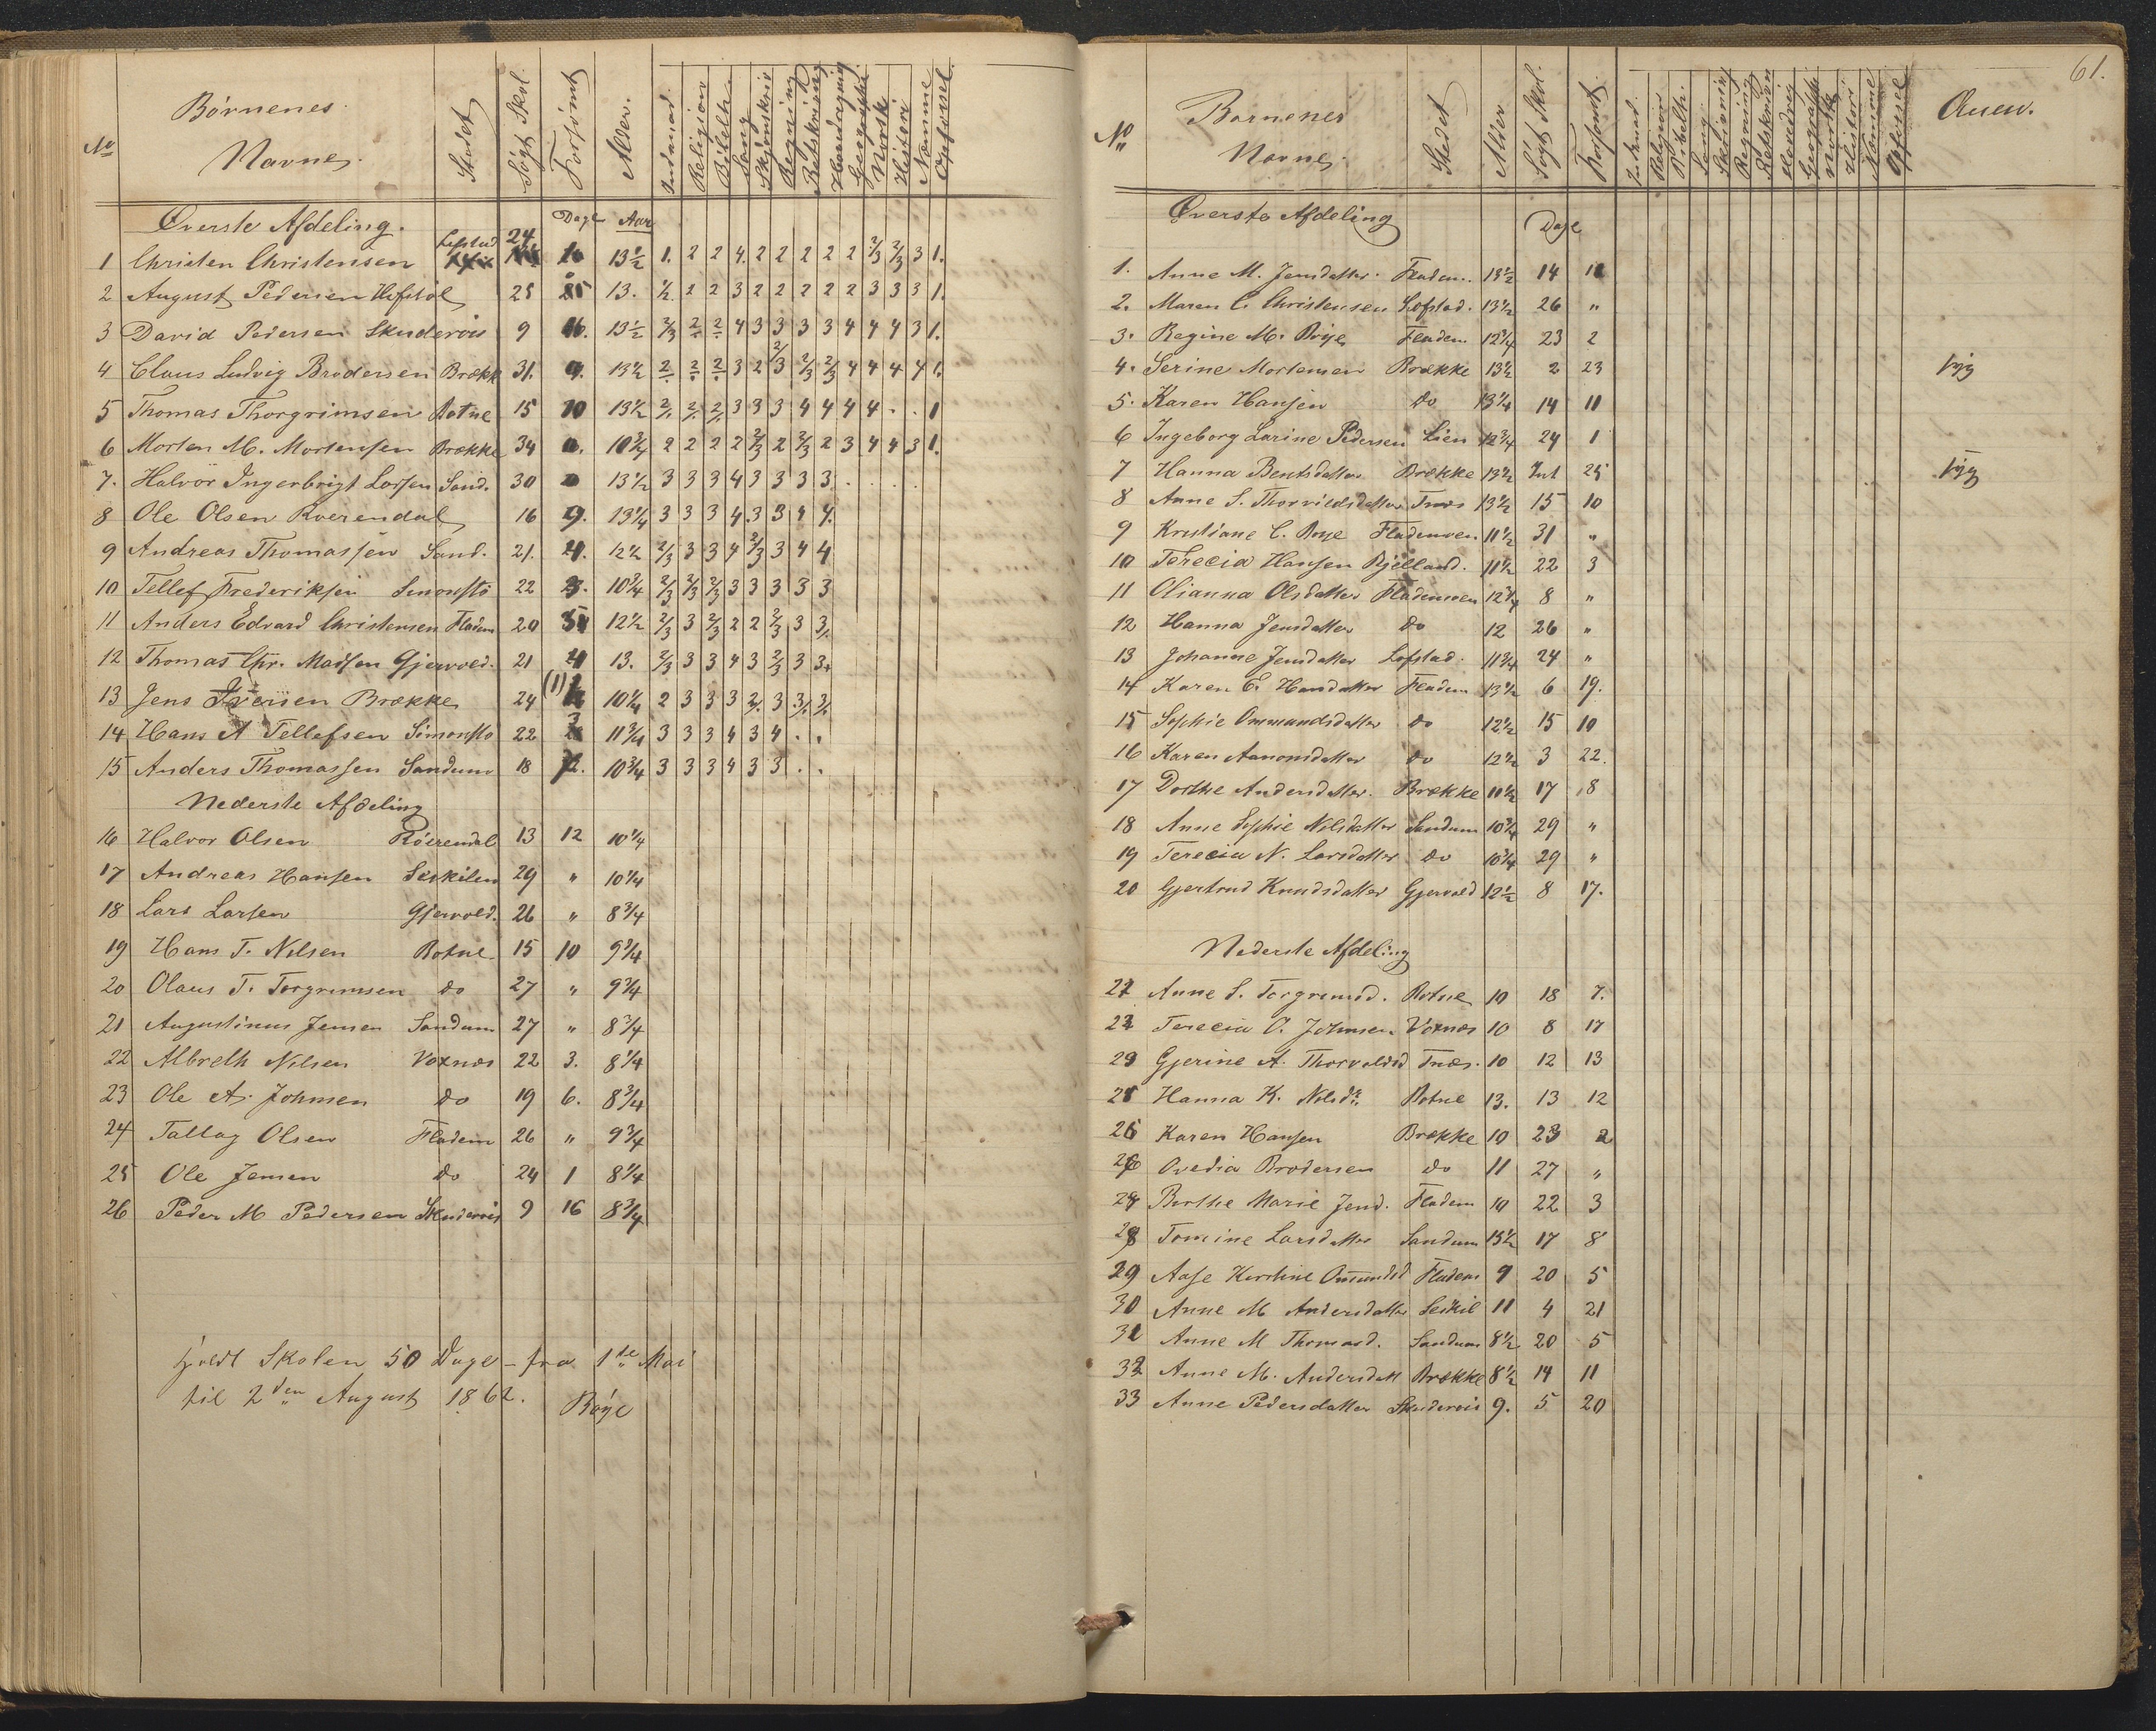 No
Børnenes
Navne.
Stedet
Søgt Skol.
Forsømt
Alder.
Indenad.
Religion
Bibelh.
Sang
Skjønskriv
Regning
Retskrivning
Haandgjerning
Geographi
Norsk
Historie
Navne
Opførsel.
Øverste Afdeling. Dage Aar
1 Christen Christensen Løfstad 24 13½ 1. 2 2 4. 2 2 2 2 2 2/3 2/3 3 1.
2 August Pedersen Hefstöl 25 13. ½ 2 2 3 2 2 2 2 2 3 3 3 1.
3 David Pedersen Skuderviis 9 16. 13½ 2/3 2 2 4 3 3 3 3 4 4 4 3 1.
4 Claus Ludvig Brodersen Brække 31. 9. 13½ 2 2 2/3 3 2 2/3 2/3 2/3 4 4 4 4 1.
5 Thomas Thorgrimsen Botne 15 10 13½ 2/. 2/. 2/. 3 3 3 4 4 4 4 . . 1
6 Morten M. Mortensen Brække 34 0. 10¾ 2 2 2 2 2/3 2 2/3 2 3 4 4 3 1.
7. Halvor Ingerbrigt Larsen Sand. 30 0 13½ 3 3 3 4 3 3 3 3 . . . .
8 Ole Olsen Røerendal 16 9. 13¼ 3 3 3 4. 3 3 4 4.
9 Andreas Thomassen Sand. 21. 4. 12½ 2/3 3 3 4 2/3 3 4 4
10 Tellef Frederiksen Simonstö 22 3. 10¾ 2/3 2/3 2/3 3 3 3 3 3
11 Anders Edvard Christensen Fladem 20 5 12½ 2/3 3 2/3 2 2 2/3 3 3/.
12 Thomas Chr. Madsen Gjervold. 21 4 13. 2/3 3 3 4 3 2/3 3 3.
13 Jens Iversen Brække 24 (1) 10¼ 2 3 3 3 2/. 3 3/. 3/.
14 Hans A Tellefsen Simonstö 22 3 11¾ 3 3 3 4 3 4 . .
15 Anders Thomassen Sandum 18 7. 10¾ 3 3 3 4 3 3 . .
Nederste Afdeling
16 Halvor Olsen Röerendal 13 12 10¼
17 Andreas Hansen Leskilen 29 " 10¼
18 Lars Larsen Gjervold. 26 " 8¾
19 Hans T. Nilsen Botne 15 10 9¾
20 Olaus T. Torgrimsen do 27 " 9¾
21 Augustinus Jensen Sandum 27 " 8¾
22 Albreth Nilsen Voxnæs 22 3. 8¼
23 Ole A. Johnsen do 19 6. 8¾
24 Tallag Olsen Fladem 26 " 9¾
25 Ole Jensen do 24 1 8¼
26 Peder M Pedersen Skuderviis 9 16 8¾
Holdt Skolen 50 Dage - fra 1ste Mai
til 2den August 1862. Bøye
61.
No
Børnenes
Navne.
Stedet
Alder
Søgt Skol.
Forsømt
Indenad.
Religion
Bibelh.
Sang
Skrivning
Regning
Retskrivn
Haandgj
Geograph
Norsk
Historie
Navne
Opførsel
Anm.
Øverste Afdeling Dage
1. Anne M. Jensdatter. Fladem. 13½ 14 11
2. Maren C. Christensen Løfstad. 13½ 26 "
3. Regine M. Bøye Fladem 12¼ 23 2
4. Serine Mortensen Brække 13½ 2 23 syg
5. Karen Hansen do 13¼ 14 11
6 Ingeborg Larine Pedersen Lien 12¾ 24 1
7 Hanna Bentsdatter Brække 13½ Int 25 syg
8 Anne S. Thorvildsdatter Tnæs 13½ 15 10
9 Kristiane C. Bøye Fladenven. 11½ 31 "
10 Terecia Hansen Bjelland. 11½ 22 3
11 Olianna Olsdatter Fladenven 12¼ 8 "
12 Hanna Jensdatter do 12 26 "
13 Johanne Jensdatter Løfstad. 11¾ 24 "
14 Karen E. Hansdatter Fladem 13½ 6 19.
15 Sophie Ommundsdatter do 12½ 15 10
16 Karen Aanonsdatter do 12½ 3 22.
17 Dorthe Andersdatter. Brække 11½ 17 8
18 Anne Sophie Nilsdatter Sandum 10¾ 29 "
19 Terecia N. Larsdatter do 10¾ 29 "
20 Gjertrud Knudsdatter Gjervold 12½ 8 17.
Nederste Afdeling
21 Anne S. Torgrimsd. Botne 10 18 7.
22 Terecia O. Johnsen Voxnæs 10 8 17
23 Gjerine A. Thorvaldsd Tnæs. 10 12 13
24 Hanna K. Nilsdr. Botne 13. 13 12
25 Karen Hansen Brække 10 23 2
26 Ovedia Brodersen do 11 27 "
27 Berthe Marie Jensd. Fladem 10 22 3
28 Tomine Larsdatter Sandum 13½ 17 8
29 Aase Kirstine Omundsd Fladem 9 20 5
30 Anne M Andersdatter Leskil 11 4 21
31 Anne M Thomasd. Sandum 8½ 20 5
32 Anne M. Andersdatt Brække 8½ 14 11
33 Anne Pedersdatter Skuderviis 9. 5 20